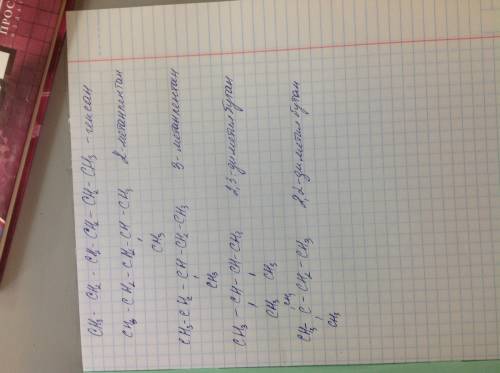 CH3 - CH2 - CH2 - CH2 - CH2 - CH3 - гексан
CH3 - CH2 - CH2 - CH - CH3 2-метанпентан
CH3
CH3 - CH2 - CH - CH2 - CH3 3-метанпентан
CH3
CH3 - CH - CH - CH3 2,3-диметилбутан
CH3 CH3
CH3
CH3 - C - CH2 - CH3 2,2-диметилбутан
CH3
ПРОС